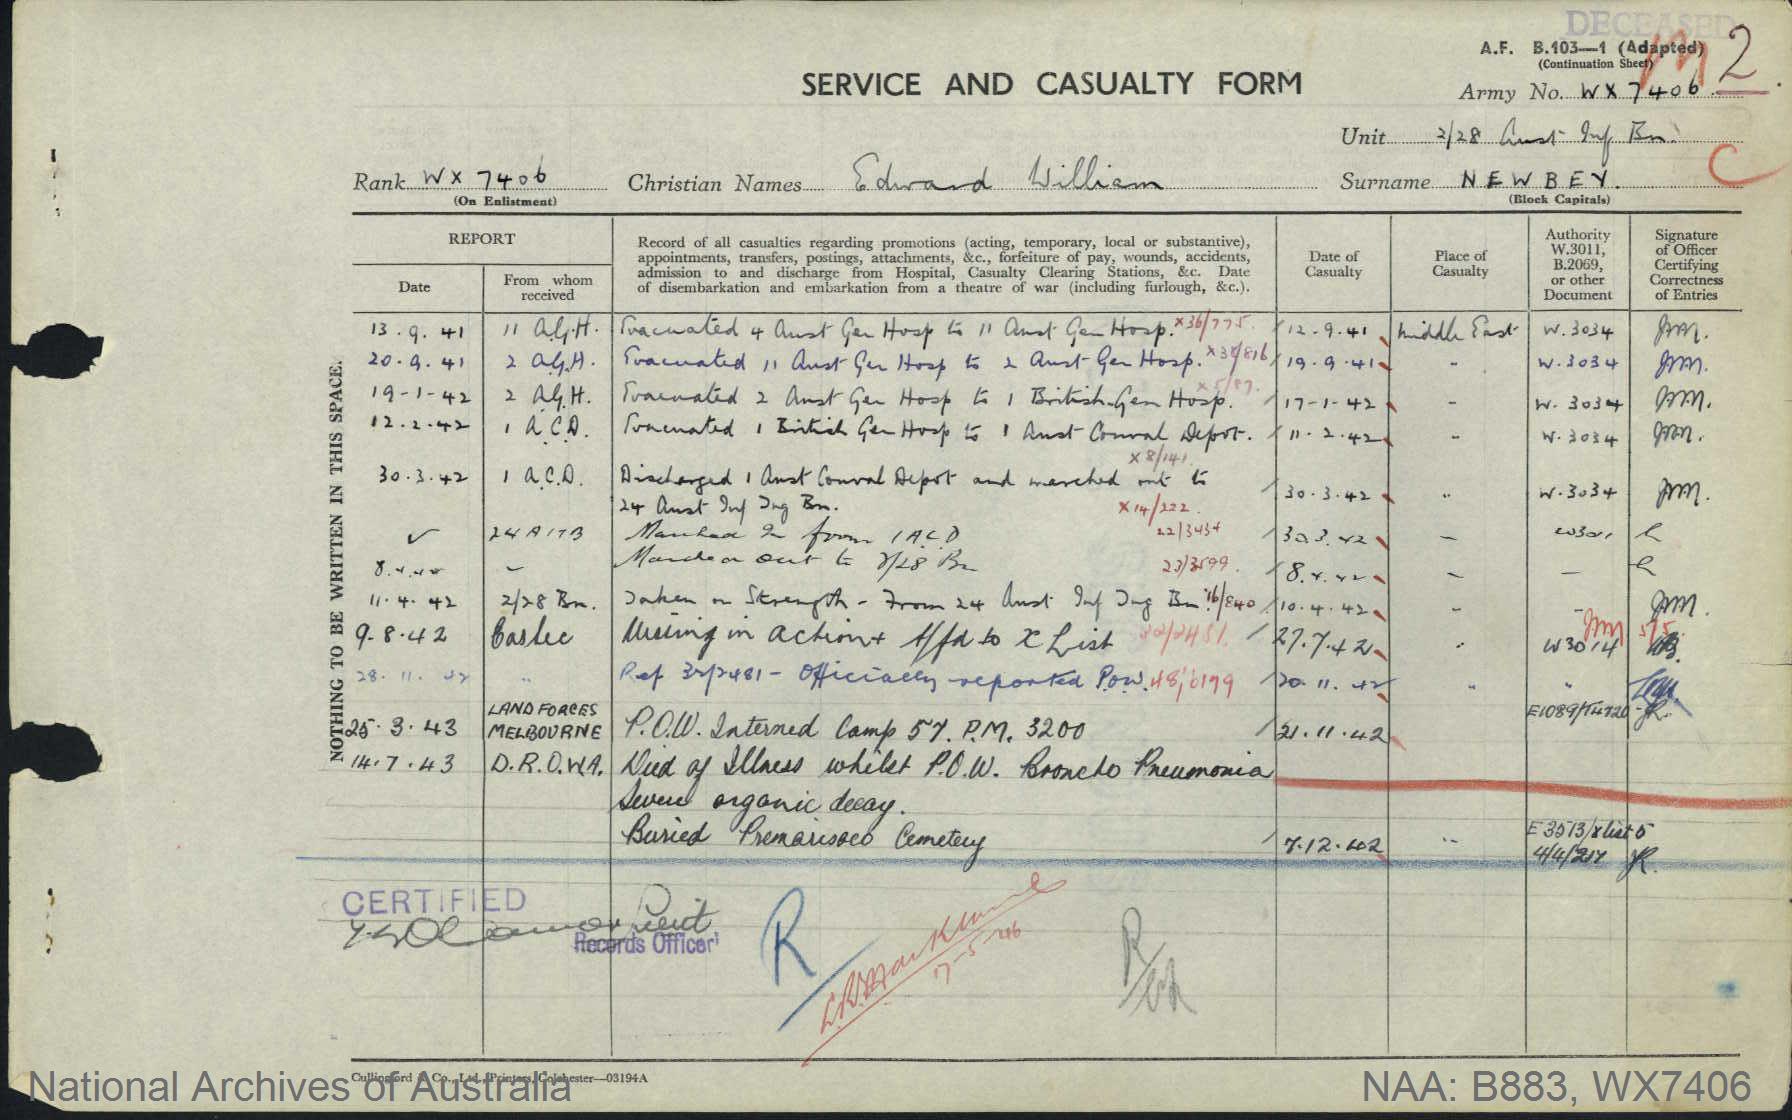 DECEASED
A.F. B.103—1 (Adapted)
(Continuation Sheet)
2
SERVICE AND CASUALTY FORM
Army No. WX7406
Unit 2/28 Aust Inf Bn.
C
Rank WX7406 Christian Names Edward William Surname NEWBEY.
(On Enlistment) (Block Capitals)
REPORT
Date
From whom received
Record of all casualties regarding promotions (acting, temporary, local or substantive),
appointments, transfers, postings, attachments, &c., forfeiture of pay, wounds, accidents,
admission to and discharge from Hospital, Casualty Clearing Stations, &c. Date
of disembarkation and embarkation from a theatre of war (including furlough, &c.).
Date of Casualty
Place of Casualty
Authority W.3011, B.2069, or other Document
Signature of Officer Certifying Correctness of Entries
NOTHING TO BE WRITTEN IN THIS SPACE.
13.9.41 11 A.G.H. Evacuated 4 Aust Gen Hosp to 11 Aust Gen Hosp. x36/775. 12.9.41 Middle East W.3034
20.9.41 2 A.G.H. Evacuated 11 Aust Gen Hosp to 2 Aust Gen Hosp. 19.9.41 - W.3034
19-1-42 2 A.G.H. Evacuated 2 Aust Gen Hosp to 1 British Gen Hosp. x5/87. 17-1-42 - W.3034
12.2.42 1 A.C.D. Evacuated 1 British Gen Hosp to 1 Aust Conval Depot. 11.2.42 " W.3034
x8/141
30.3.42 1 A.C.D. Discharged 1 Aust Conval Depot and marched out to
24 Aust Inf Tng Bn. x14/222 30.3.42 " W.3034
✓ 24 AITB Marched In from 1 ACD 22/3434 30.3.42 -
8.4.42 - Marched out to 2/28 Bn 8.4.42 - -
11.4.42 2/28 Bn. Taken on Strength - From 24 Aust Inf Tng Bn. 16/840 10.4.42 "
9-8-42 Easlec Missing in action + t/fd to X List 32/2481. 27.7.42 " W3014
28.11.42 " Ref 32/2481 - Officially reported P.O.W. 48/0199 20.11.42 " "
25.3.43 LAND FORCES
MELBOURNE P.O.W. Interned Camp 57. P.M. 3200 21.11.42 E1089/T4720
14.7.43 D.R.O.W.A. Died of Illness whilst P.O.W. Broncho Pneumonia
Severe organic decay.
Buried Premarisacco Cemetery 7.12.42 " E3513/x list 5
4/4/217
CERTIFIED
Lieut
Records Officer
R
17-5-46
R
Cullingford & Co., Ltd., Printers, Colchester—03194A
National Archives of Australia
NAA: B883, WX7406